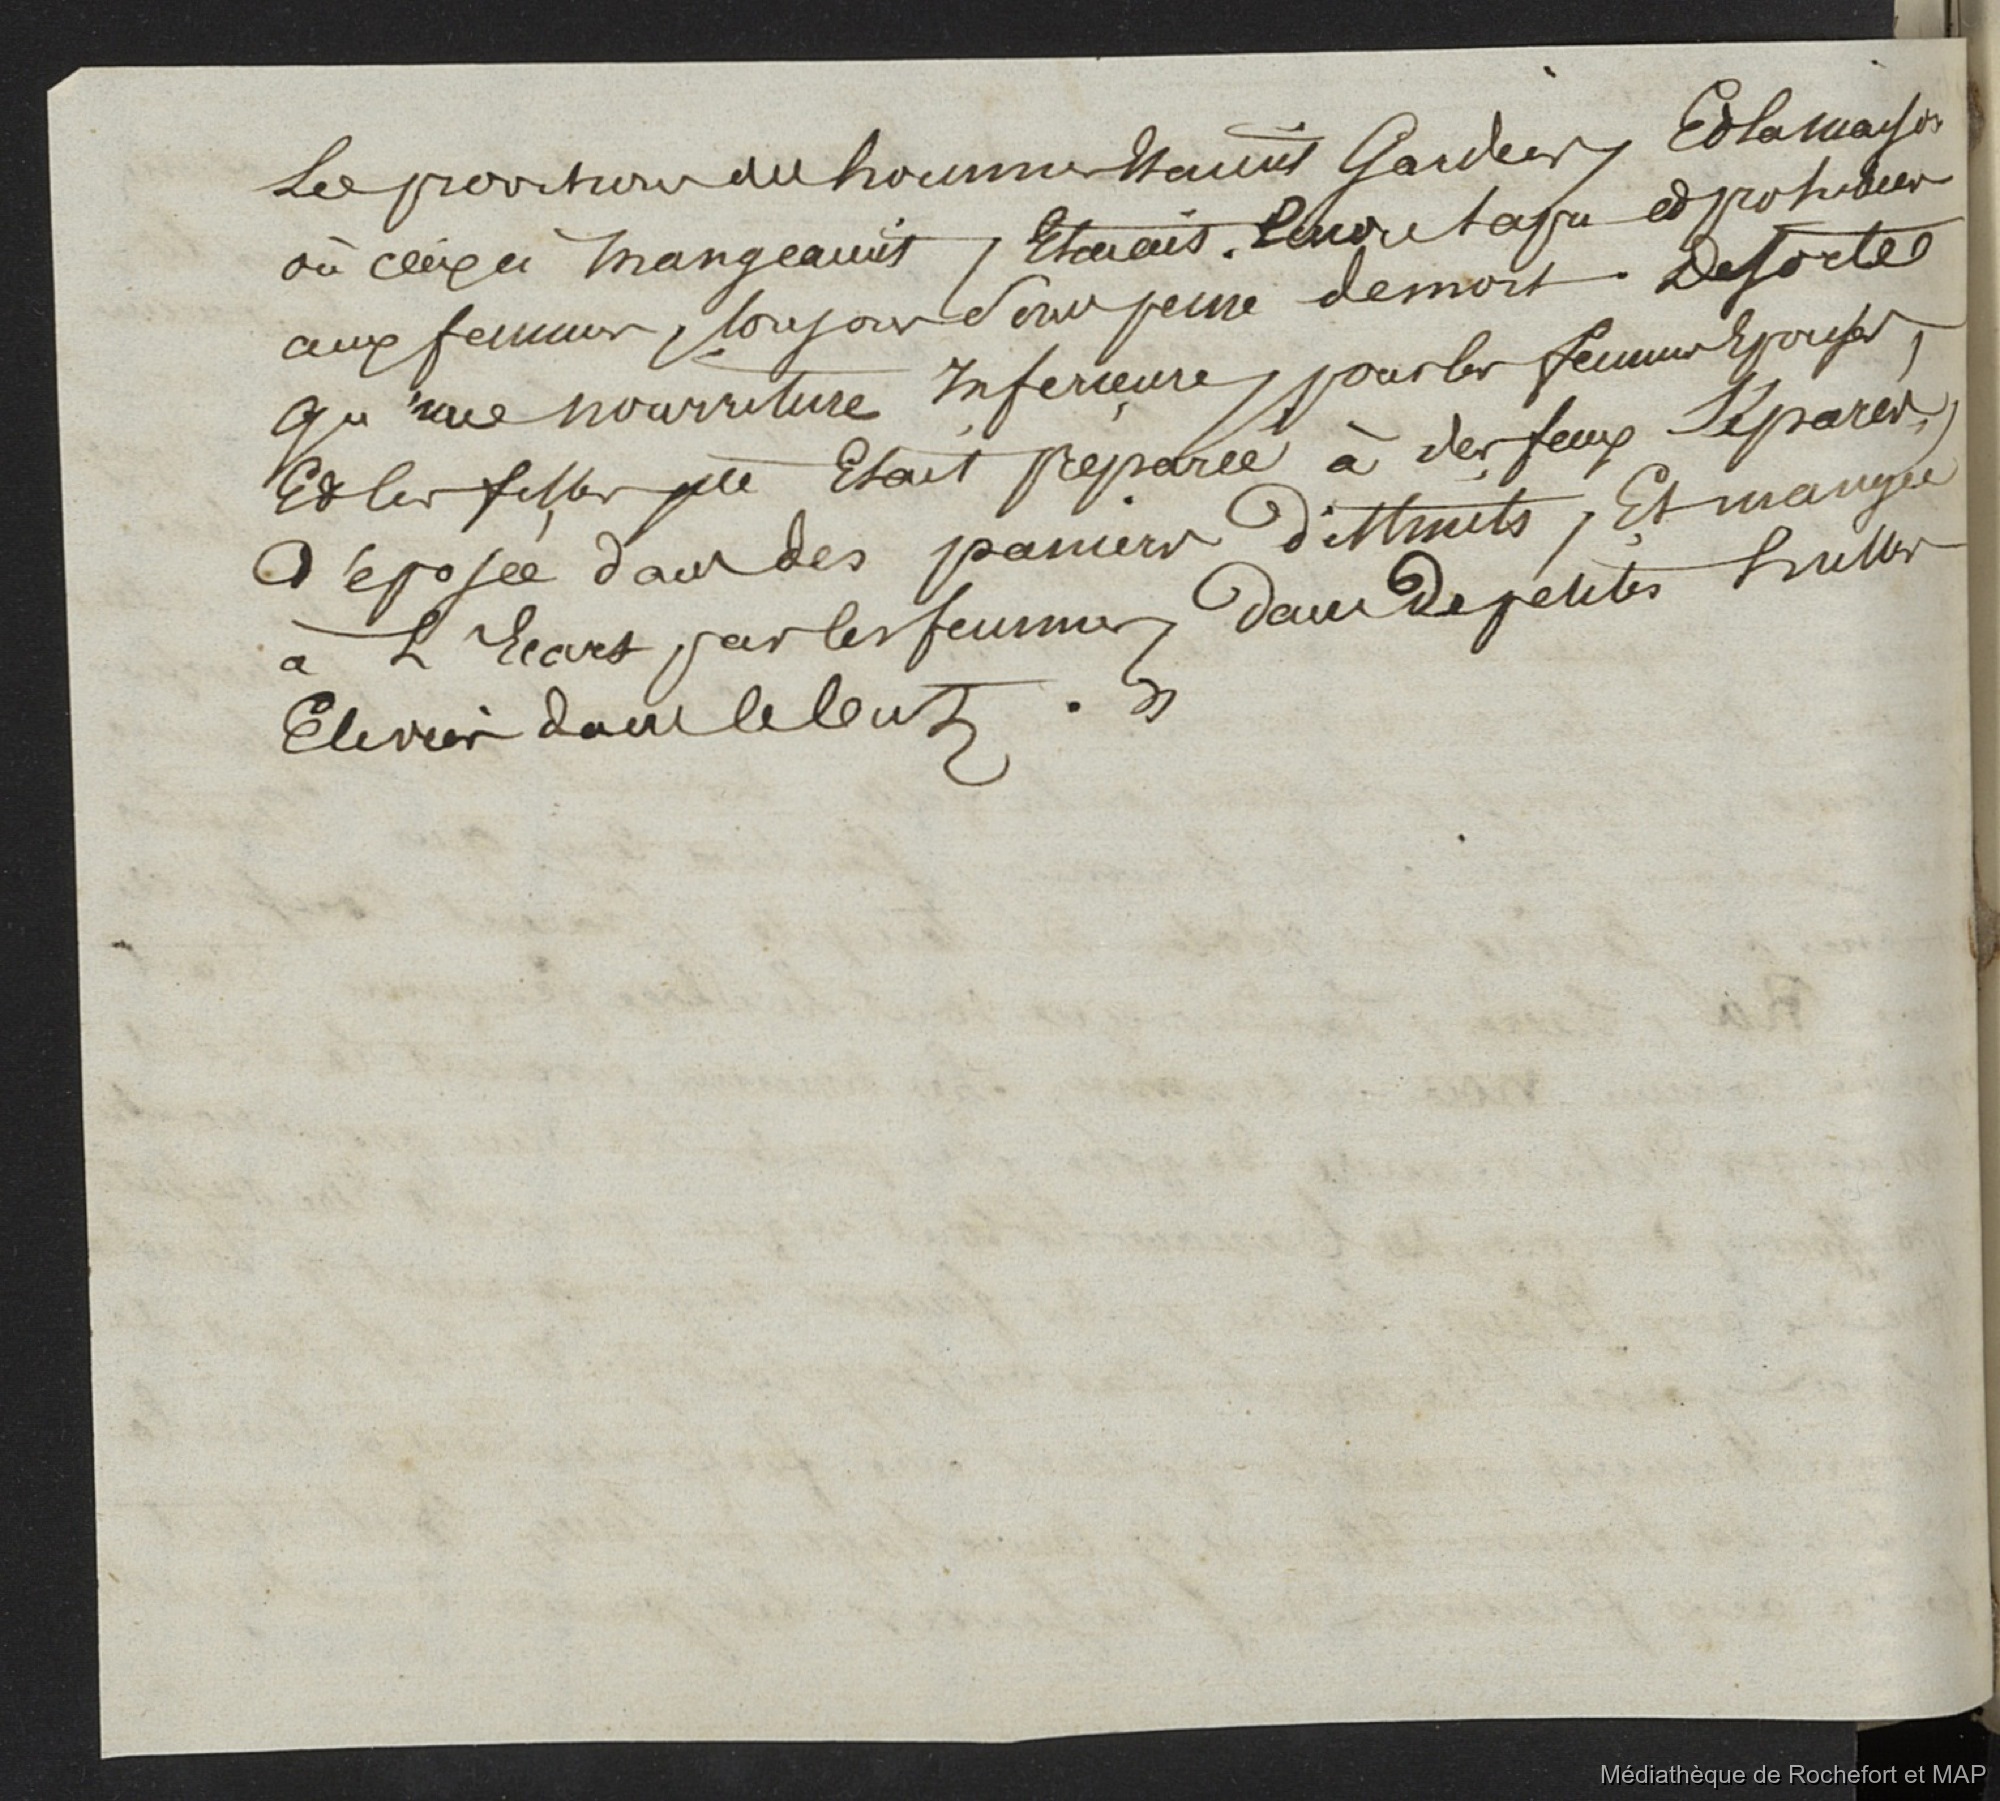 Les provisions des hommes Etaient Gardées, Et la maison
où ceux ci mangeaient, Etaient Encore tapu et prohibées
aux femmes, toujours sous peine de mort. De sorte
qu'une nourriture Inferieure, pour les femmes Epouses,
Et les filles Etait preparée à des feux Séparés,
Déposée dans des paniers distincts, Et mangée
à L'Ecart par les femmes, dans de petites huttes
Elevées dans le but.
Médiathèque de Rochefort et MAP